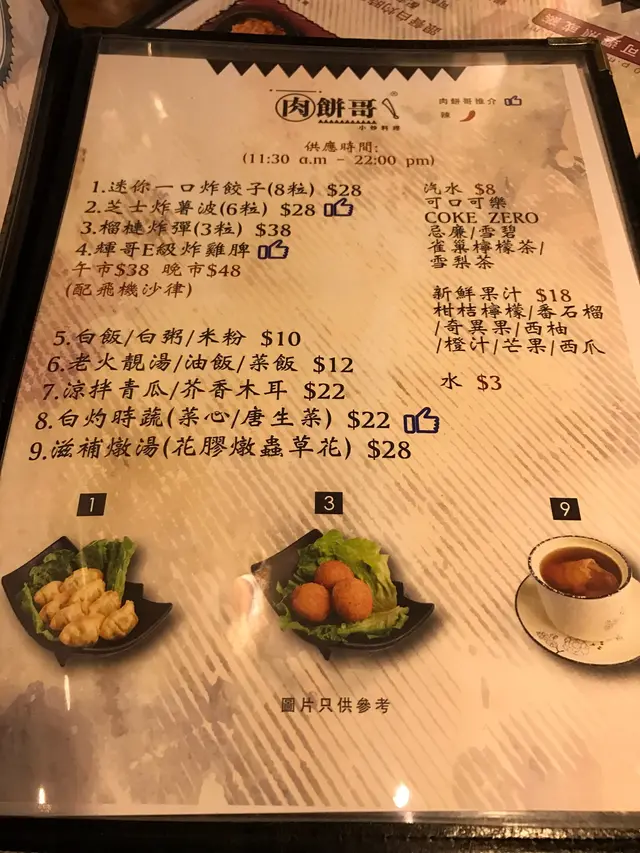 肉餅哥
小炒料理
肉餅哥推介
辣
供應時間:
(11:30 a.m - 22:00 pm)
1.迷你一口炸餃子(8粒) $28
2.芝士炸薯波(6粒) $28
3.榴槤炸彈(3粒) $38
4.輝哥E級炸雞脾
午市$38 晚市$48
(配飛機沙律)
5.白飯/白粥/米粉 $10
6.老火靚湯/油飯/菜飯 $12
7.涼拌青瓜/芥香木耳 $22
8.白灼時蔬(菜心/唐生菜) $22
9.滋補燉湯(花膠燉蟲草花) $28
汽水 $8
可口可樂
COKE ZERO
忌廉/雪碧
雀巢檸檬茶/
雪梨茶
新鮮果汁 $18
柑桔檸檬/番石榴
/奇異果/西柚
/橙汁/芒果/西瓜
水 $3
1
3
9
圖片只供參考